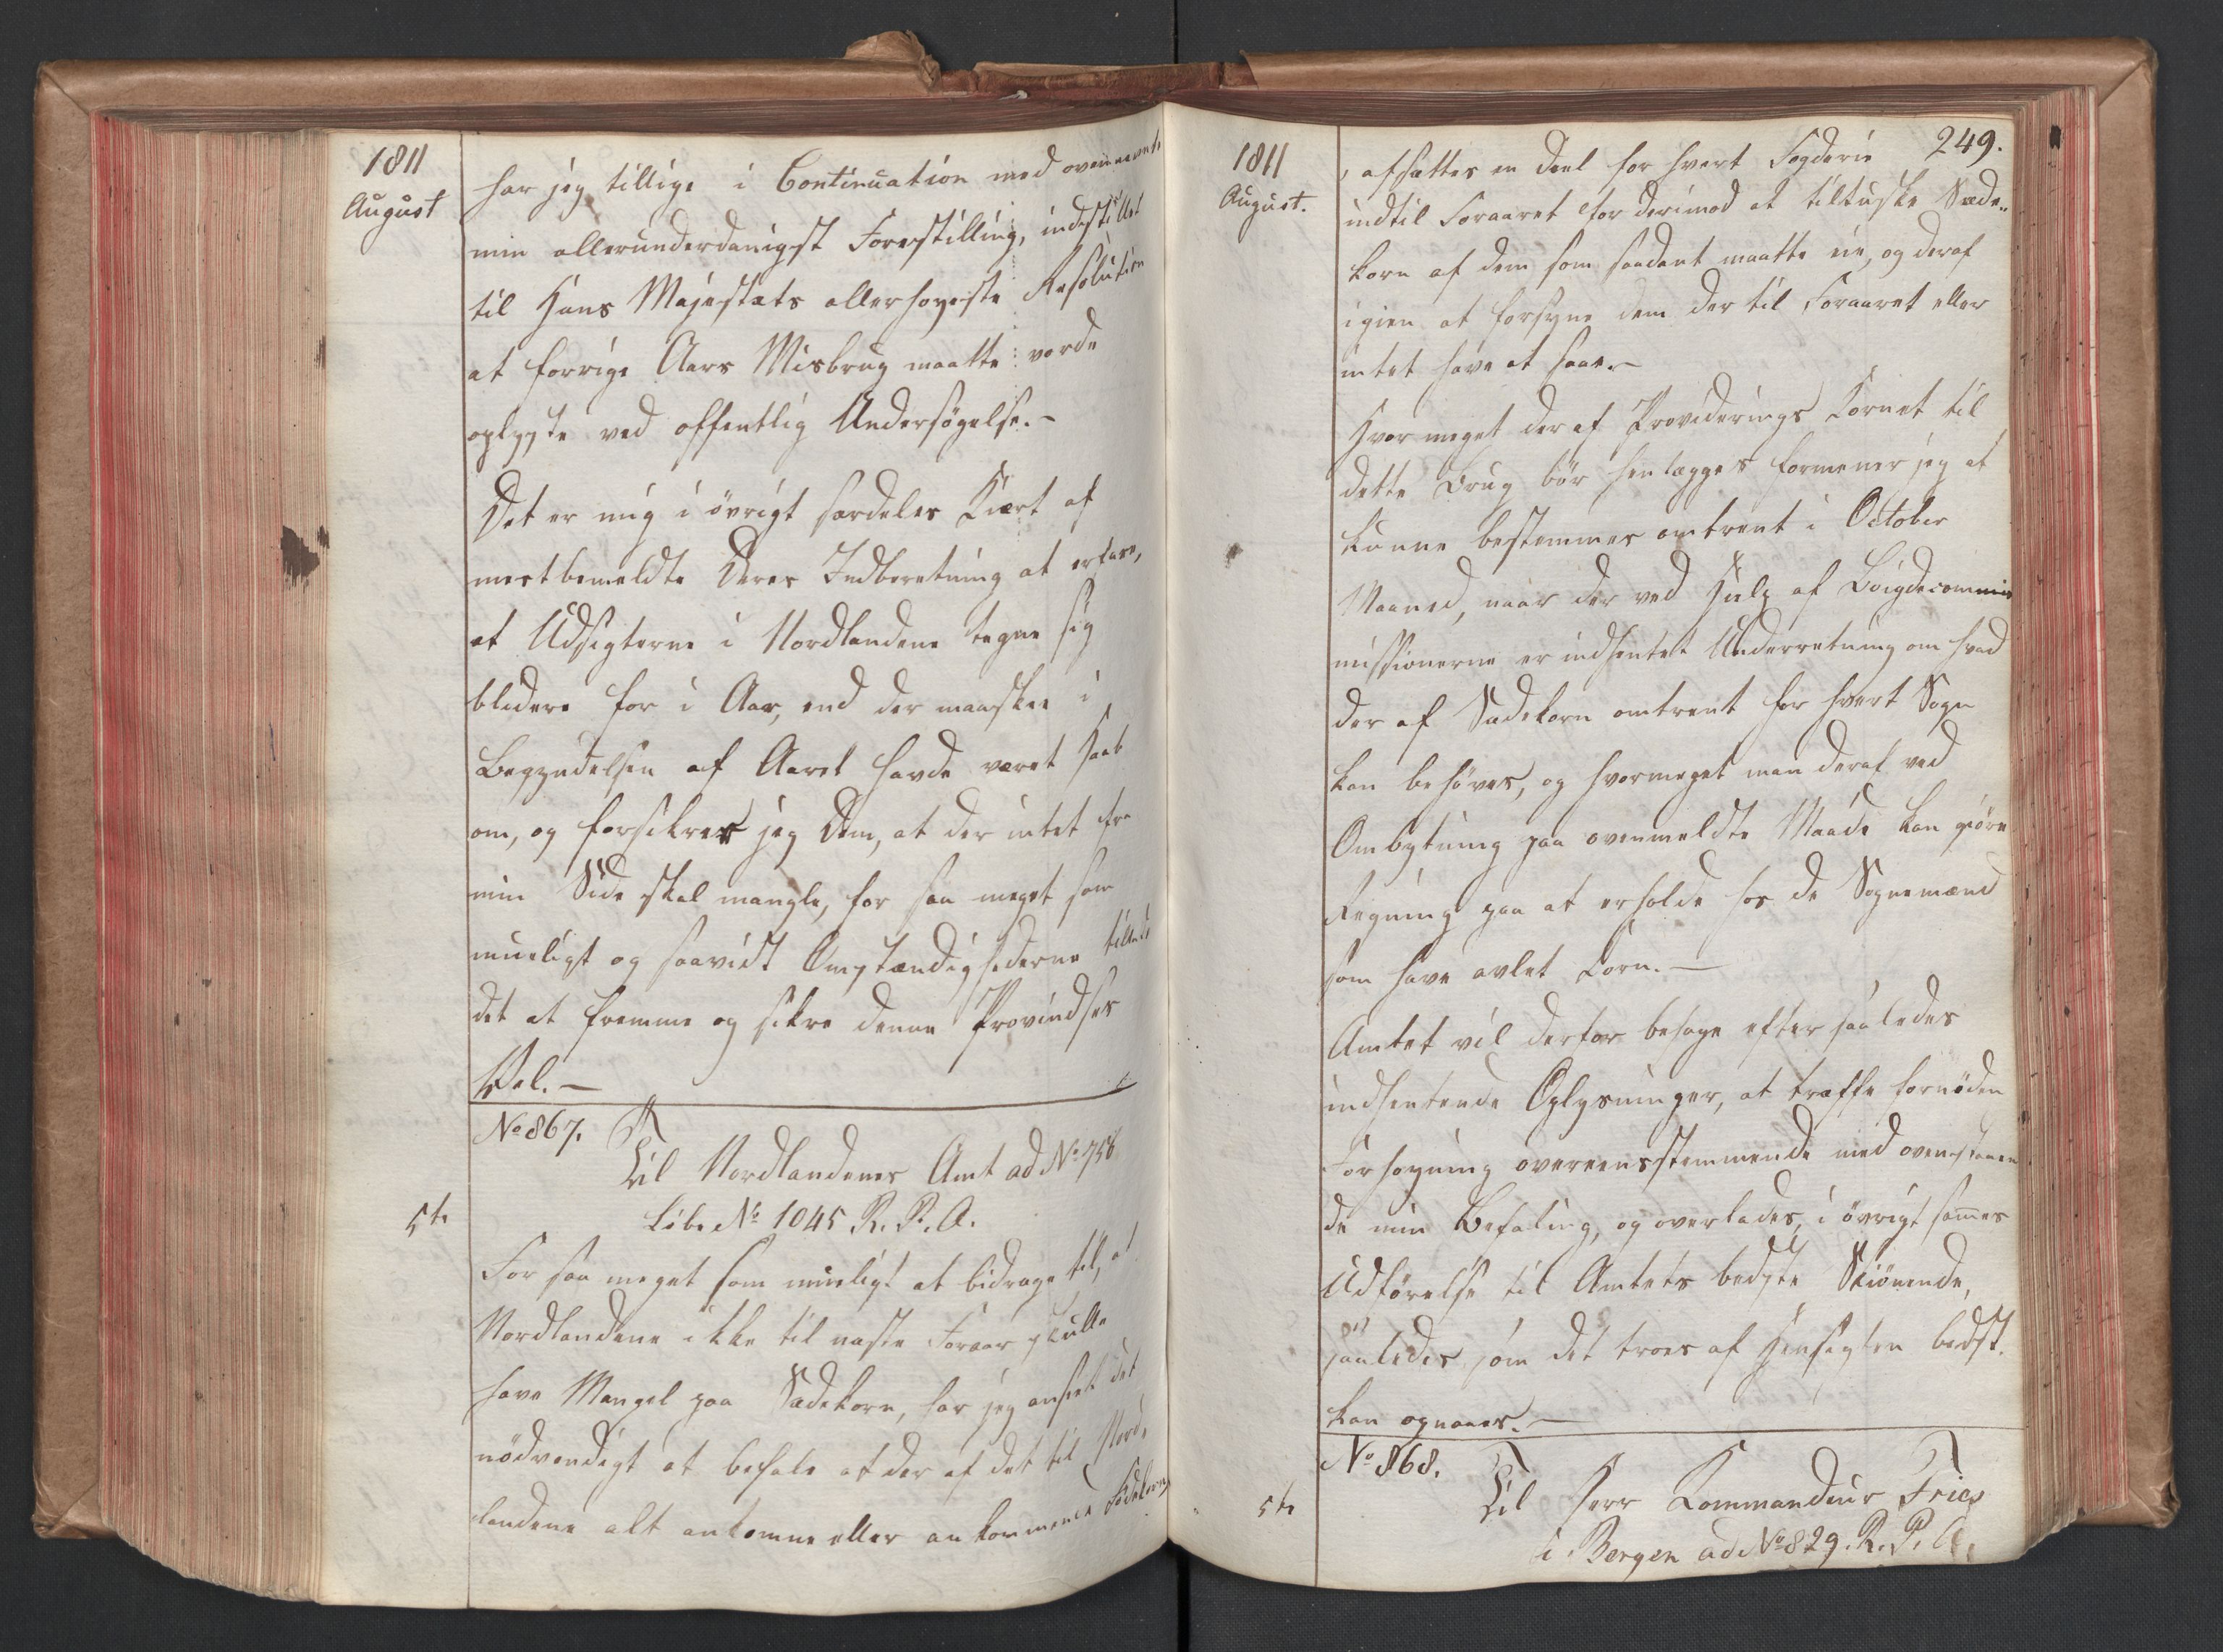 1811
August
har jeg tillige i Continuation med ovennevnte
min allerunderdanigst Forestilling, indstillet
til Hans Majestæts allerhøyeste Resolution
at forrige Aars Misbrug maatte vorde
oplyste ved offentlig Undersøgelse.-
Det er mig i øvrigt særdeles Kiært af
mestbemeldte Deres Indberetning at erfare,
at Udsigterne i Nordlandene tegne sig
blidere for i Aar, end der maaskee i
Begyndelsen af Aaret havde været Haab
om, og forsikrer jeg Dem, at der intet fra
min Side skal mangle, for saa meget som
mueligt og saavidt Omstændighederne tillade
det at fremme og sikre denne Provindses
Vel.-
No 867.
Til Nordlandenes Amt ad No 758
5te
Lib. No 1045 R. P. A.
For saa meget som mueligt at bidrage til, at
Nordlandene ikke til næste Foraar skulle
have Mangel paa Sædekorn, har jeg anseet det
nødvendigt at befale at der af det til Nord,
landene alt ankomne eller ankommende Fødekorn
1811
August.
249.
, afsættes en Deel for hvert Fogderie
indtil Foraaret for derimod at tiltuske Sæde„
korn af dem som saadant maatte eie, og deraf
igien at forsyne dem der til Foraaret eller
intet have at saae.-
Hvor meget der af Providerings Kornet til
dette Brug bør henlægges formener jeg at
kunne bestemmes omtrent i October
Maaned, naar der ved Hielp af Bøigdecommis
missionerne er indhentet Underretning om hvad
der af Sædekorn omtrent for hvert Sogn
kan behøves, og hvormeget man deraf ved
Ombytning paa ovenmeldte Maade kan giøre
Regning paa at erholde hos de Sognemænd
som have avlet Korn.-
Amtet vil derfor behage efter saaledes
indhentende Oplysninger, at træffe fornøden
Forføyning overeensstemmende med ovenstaaen
de min Befaling, og overlades i øvrigt sammes
Udførelse til Amtets bedste Skiønnende,
saaledes som det troes at Hensigten bedst
kan opnaaes.-
No 868.
5te
Til Herr Kommandeur Fries
i Bergen ad No 829. R. P. C.